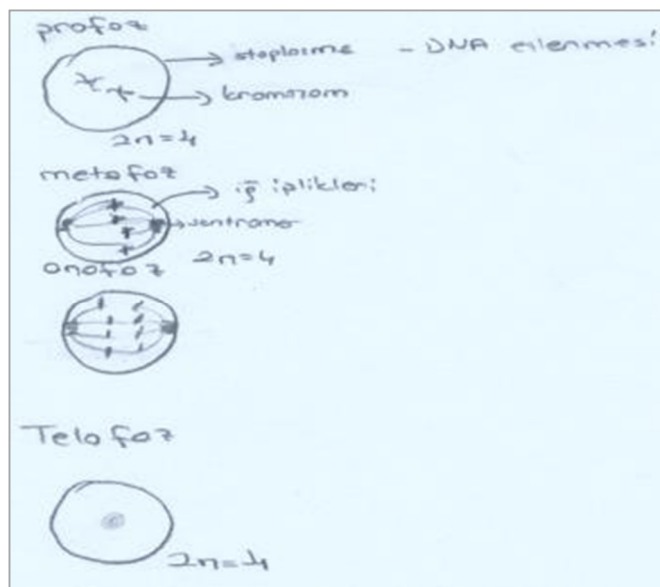 profoz
stoplasma - DNA eşlenmesi
kromozom
2n=4
metafoz
iğ iplikleri
sentromer
2n=4
anafoz
Telofoz
2n=4